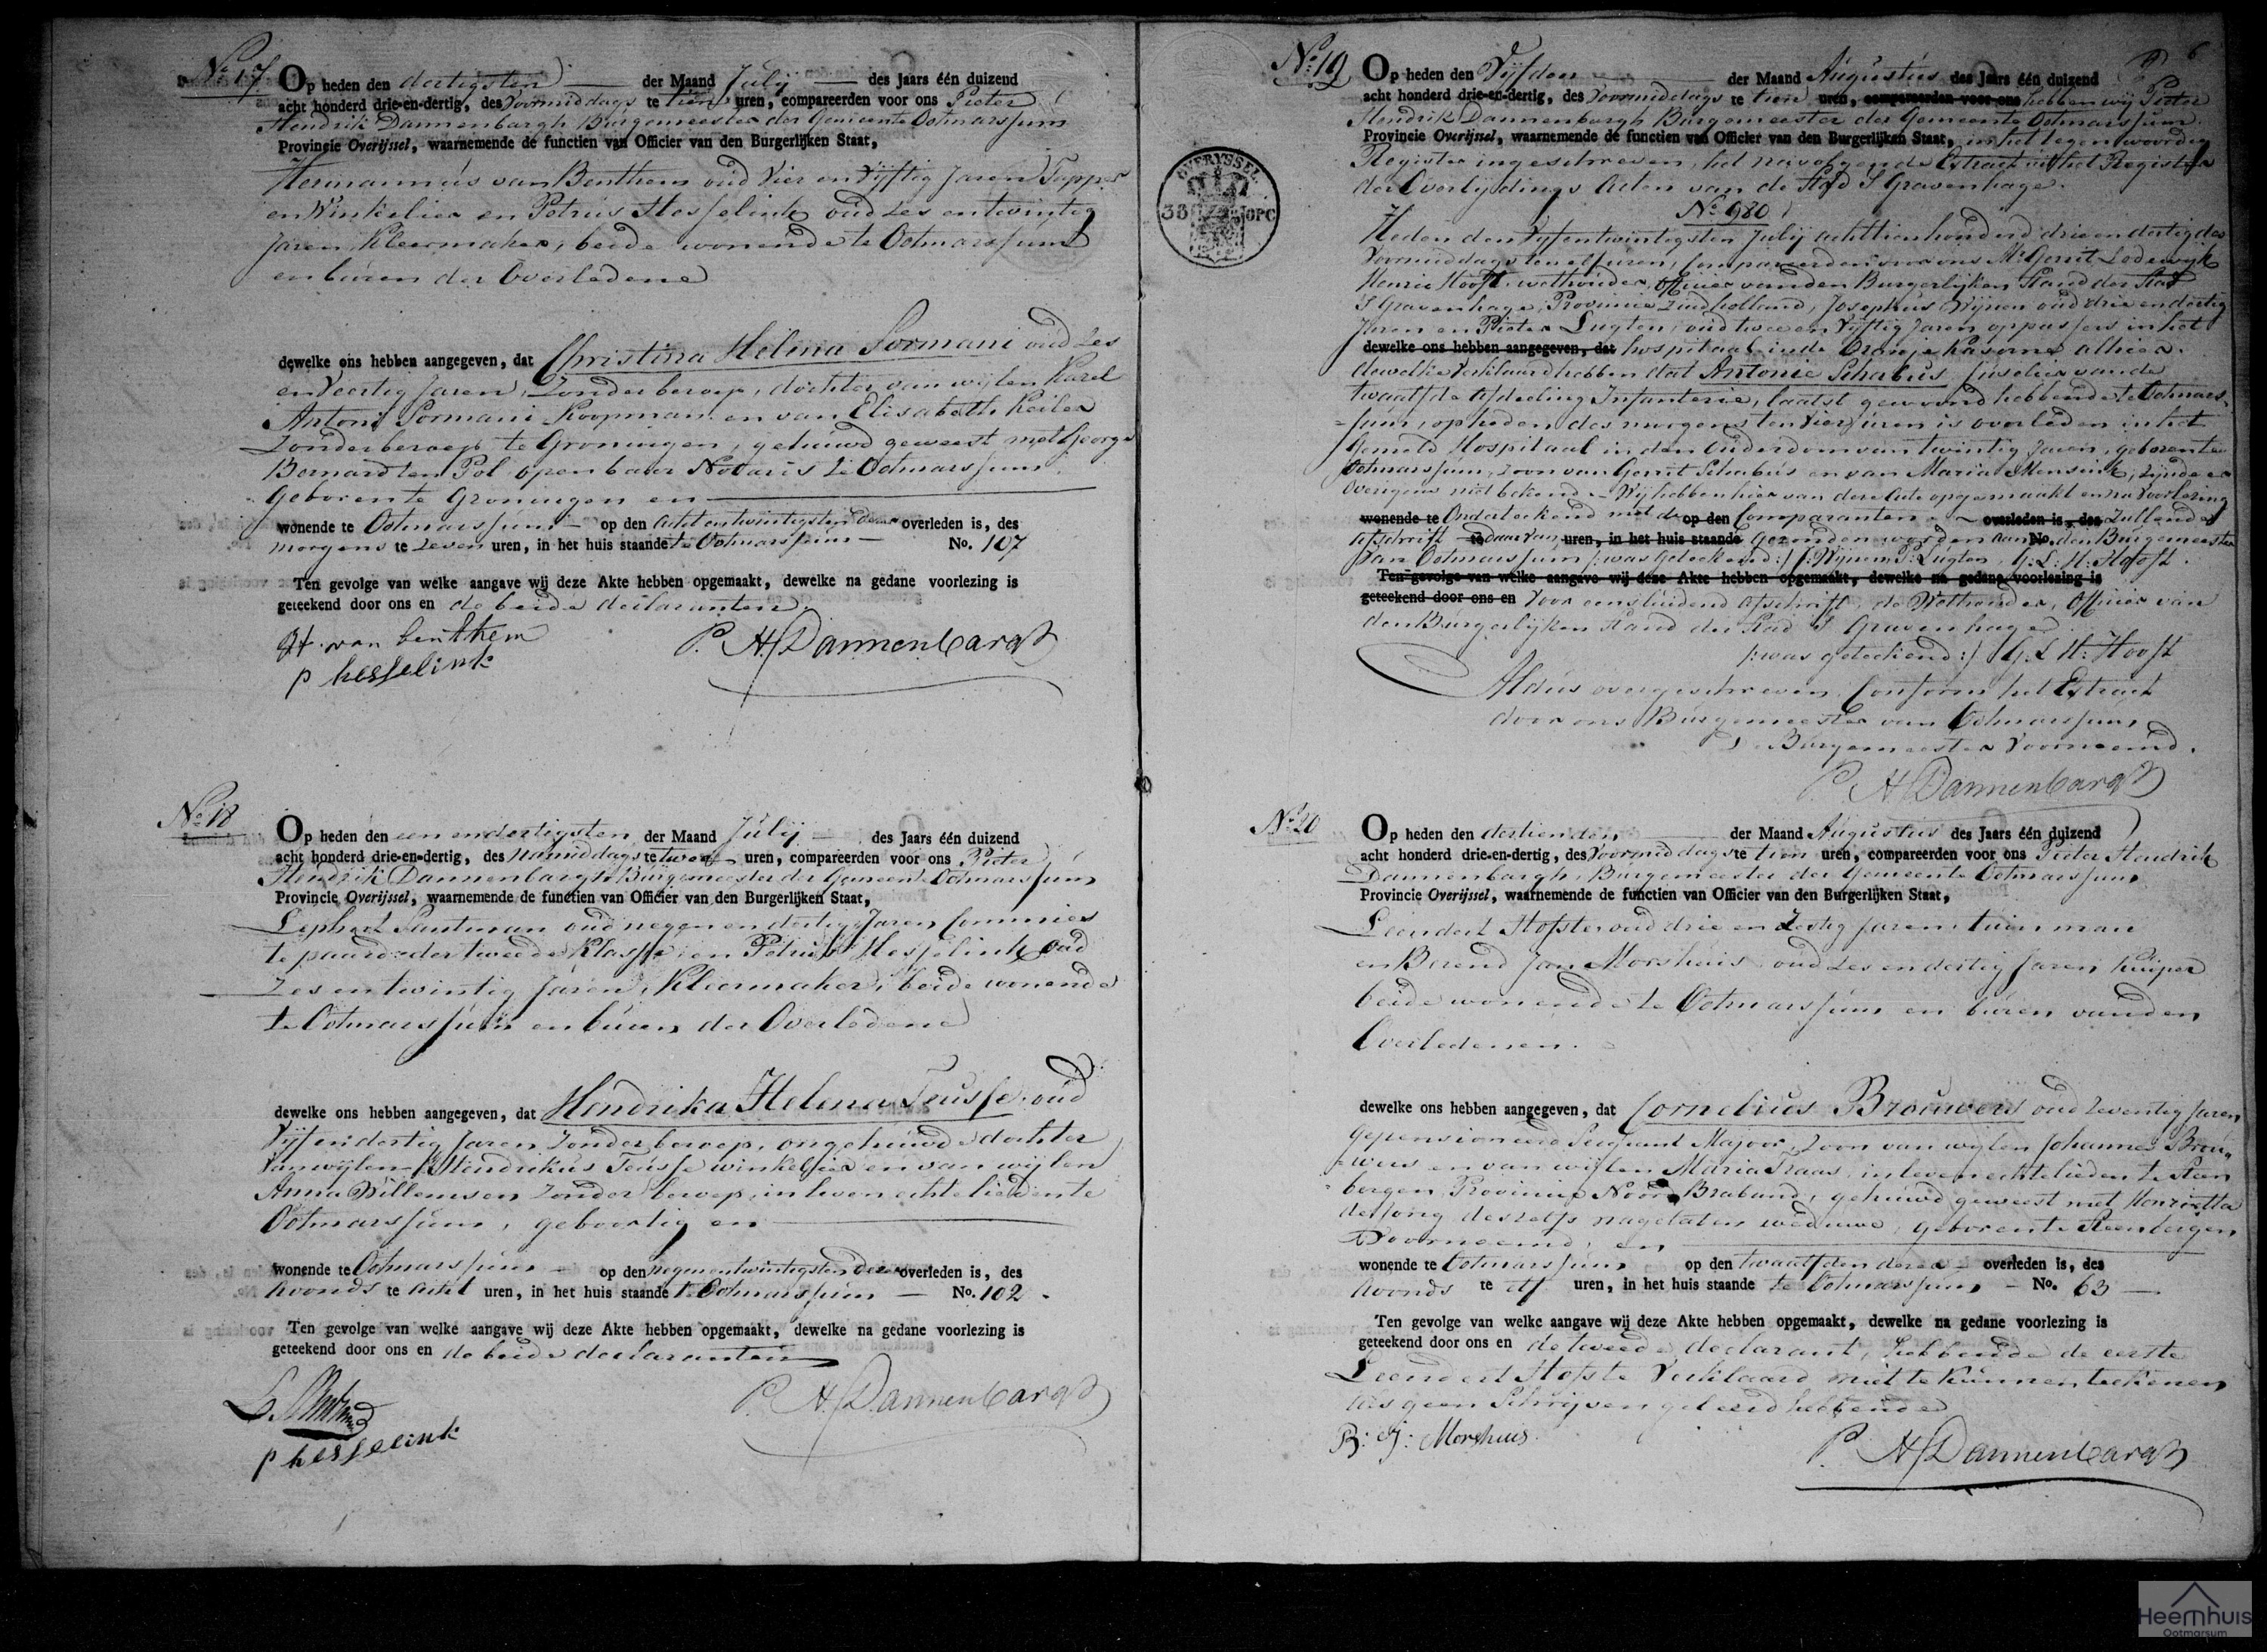 No. 17
Op heden den dertigsten der Maand Julij des Jaars één duizend
acht honderd drie-en-dertig, des Voormiddags te tien uren, compareerden voor ons Pieter
Hendrik Dannenbargh Burgemeester der Gemeente Ootmarssum
Provincie Overijssel, waarnemende de functien van Officier van den Burgerlijken Staat,
Hermannus van Benthem oud Vier en Vijftig Jaren Tapper
en Winkelier en Petrus Hesselink oud Zes en twintig
Jaren, Kleermaker, beide wonende te Ootmarssum
en buren der Overledene
dewelke ons hebben aangegeven, dat Christina Helena Sormani oud Zes
en Veertig Jaren, Zonder beroep, dochter van wijlen Karel
Antoni Sormani Koopman en van Elisabeth Keiler
Zonder beroep te Groningen, gehuwd geweest met George
Bernard ten Pol openbaar Notaris te Ootmarssum
Geboren te Groningen en
wonende te Ootmarssum op den acht en twintigsten dezer overleden is, des
morgens te Zeven uren, in het huis staande te Ootmarssum No. 107
Ten gevolge van welke aangave wij deze Akte hebben opgemaakt, dewelke na gedane voorlezing is
geteekend door ons en de beide declaranten.
H. van benthem P. H. Dannenbargh
p hesselink
No. 18
Op heden den een en dertigsten der Maand Julij des Jaars één duizend
acht honderd drie-en-dertig, des Namiddags te twee uren, compareerden voor ons Pieter
Hendrik Dannenbargh Burgemeester der Gemeente Ootmarssum
Provincie Overijssel, waarnemende de functien van Officier van den Burgerlijken Staat,
oud negen en dertig Jaren Commies
te paard der tweede Klasse, en Petrus Hesselink oud
Zes en twintig Jaren, Kleermaker, beide wonende
te Ootmarssum en buren der Overledene
dewelke ons hebben aangegeven, dat Hendrika Helena Teusse oud
Vijf en dertig Jaren Zonder beroep, ongehuwde dochter
van wijlen Hendrikus Teusse winkelier en van wijlen
Anna Willemsen Zonder beroep, in leven echtelieden te
Ootmarssum, geboortig en
wonende te Ootmarssum op den negen en twintigsten dezer overleden is, des
Avonds te acht uren, in het huis staande te Ootmarssum No. 102.
Ten gevolge van welke aangave wij deze Akte hebben opgemaakt, dewelke na gedane voorlezing is
geteekend door ons en de beide declaranten
P. H. Dannenbargh
p hesselink
6
No. 19
Op heden den Vijfden der Maand Augustus des Jaars één duizend
acht honderd drie-en-dertig, des Voormiddags te tien uren, compareerden voor ons hebben wij Pieter
Hendrik Dannenbargh Burgemeester der Gemeente Ootmarssum
Provincie Overijssel, waarnemende de functien van Officier van den Burgerlijken Staat, in het tegenwoordig
Register ingeschreven, het navolgende Extract uit het Register
der Overlijdings Acten van de Stad 'S Gravenhage.
No. 980
Heden den Vijfentwintigsten Julij achttienhonderd drie en dertig des
Voormiddags ten elf uren, Compareerden voor ons Mr. Gerrit Lodewijk
Henric Hooft wethouder, Officier van den Burgerlijken Stand der Stad
S Gravenhage, Provincie Zuidholland, Josephus Wijnen oud drie en dertig
Jaren en Pieter Lugten, oud twee en Vijftig Jaren oppassers in het
dewelke ons hebben aangegeven, dat hospitaal in de Oranje Kaserne alhier.
dewelke Verklaard hebben dat Antonie Schabus, fuselier van de
twaalfde Afdeeling Infanterie, laatst gewoond hebbende te Ootmars-
=sum, op heden des morgens ten Vier uren is overleden in het
Gemeld Hospitaal in den Ouderdom van twintig Jaren, geboren te
Ootmarssum, Zoon van Gerrit Schabus en van Maria Mensink, zijnde er
Overigens niet bekend. — Wij hebben hier van deze Acte opgemaakt en na Voorlezing
wonende te Onderteekend met de op den Comparanten. overleden is, des Zullende
Afschrift te daar van uren, in het huis staande Gezonden worden aan No. den Burgemeester
van Ootmarssum /:was geteekend:/ J: Wijnen, P: Lugten, G: L: H: Hooft.
Ten gevolge van welke aangave wij deze Akte hebben opgemaakt, dewelke na gedane voorlezing is
geteekend door ons en Voor eensluidend Afschrift, de Wethouder, Officier van
den Burgerlijken Stand der Stad S Gravenhage
/:was geteekend:/ G: L: H: Hooft
Aldus overgeschreven Conform het Extract
door ons Burgemeester van Ootmarssum
Burgemeester Voornoemd.
P. H. Dannenbargh
No. 20
Op heden den dertienden der Maand Augustus des Jaars één duizend
acht honderd drie-en-dertig, des Voormiddags te tien uren, compareerden voor ons Pieter Hendrik
Dannenbargh, Burgemeester der Gemeente Ootmarssum
Provincie Overijssel, waarnemende de functien van Officier van den Burgerlijken Staat,
Leendert Hofste oud drie en Zestig Jaren, tuinman
en Berend Jan Morshuis oud Zes en dertig Jaren Kuiper
beide wonende te Ootmarssum en buren van den
Overledenen.
dewelke ons hebben aangegeven, dat Cornelius Brouwers oud Zeventig Jaren
Gepensioneerd Sergeant Majoor, Zoon van wijlen Johannes Brou-
=wers en van wijlen Maria Kraas, in leven echtelieden te Steen
bergen, Provincie Noord Braband, gehuwd geweest met Henrietta
deszelfs nagelaten weduwe, geboren te Steenbergen
Voornoemd, en
wonende te Ootmarssum op den twaalfden dezer overleden is, des
Avonds te elf uren, in het huis staande te Ootmarssum No. 63
Ten gevolge van welke aangave wij deze Akte hebben opgemaakt, dewelke na gedane voorlezing is
geteekend door ons en de tweede declarant, hebbende de eerste
Leendert Hofste Verklaard niet te kunnen teekenen
als geen Schrijven geleerd hebbende
B: J: Morshuis. P. H. Dannenbargh
OVERYSSEL
Heemhuis
Ootmarsum